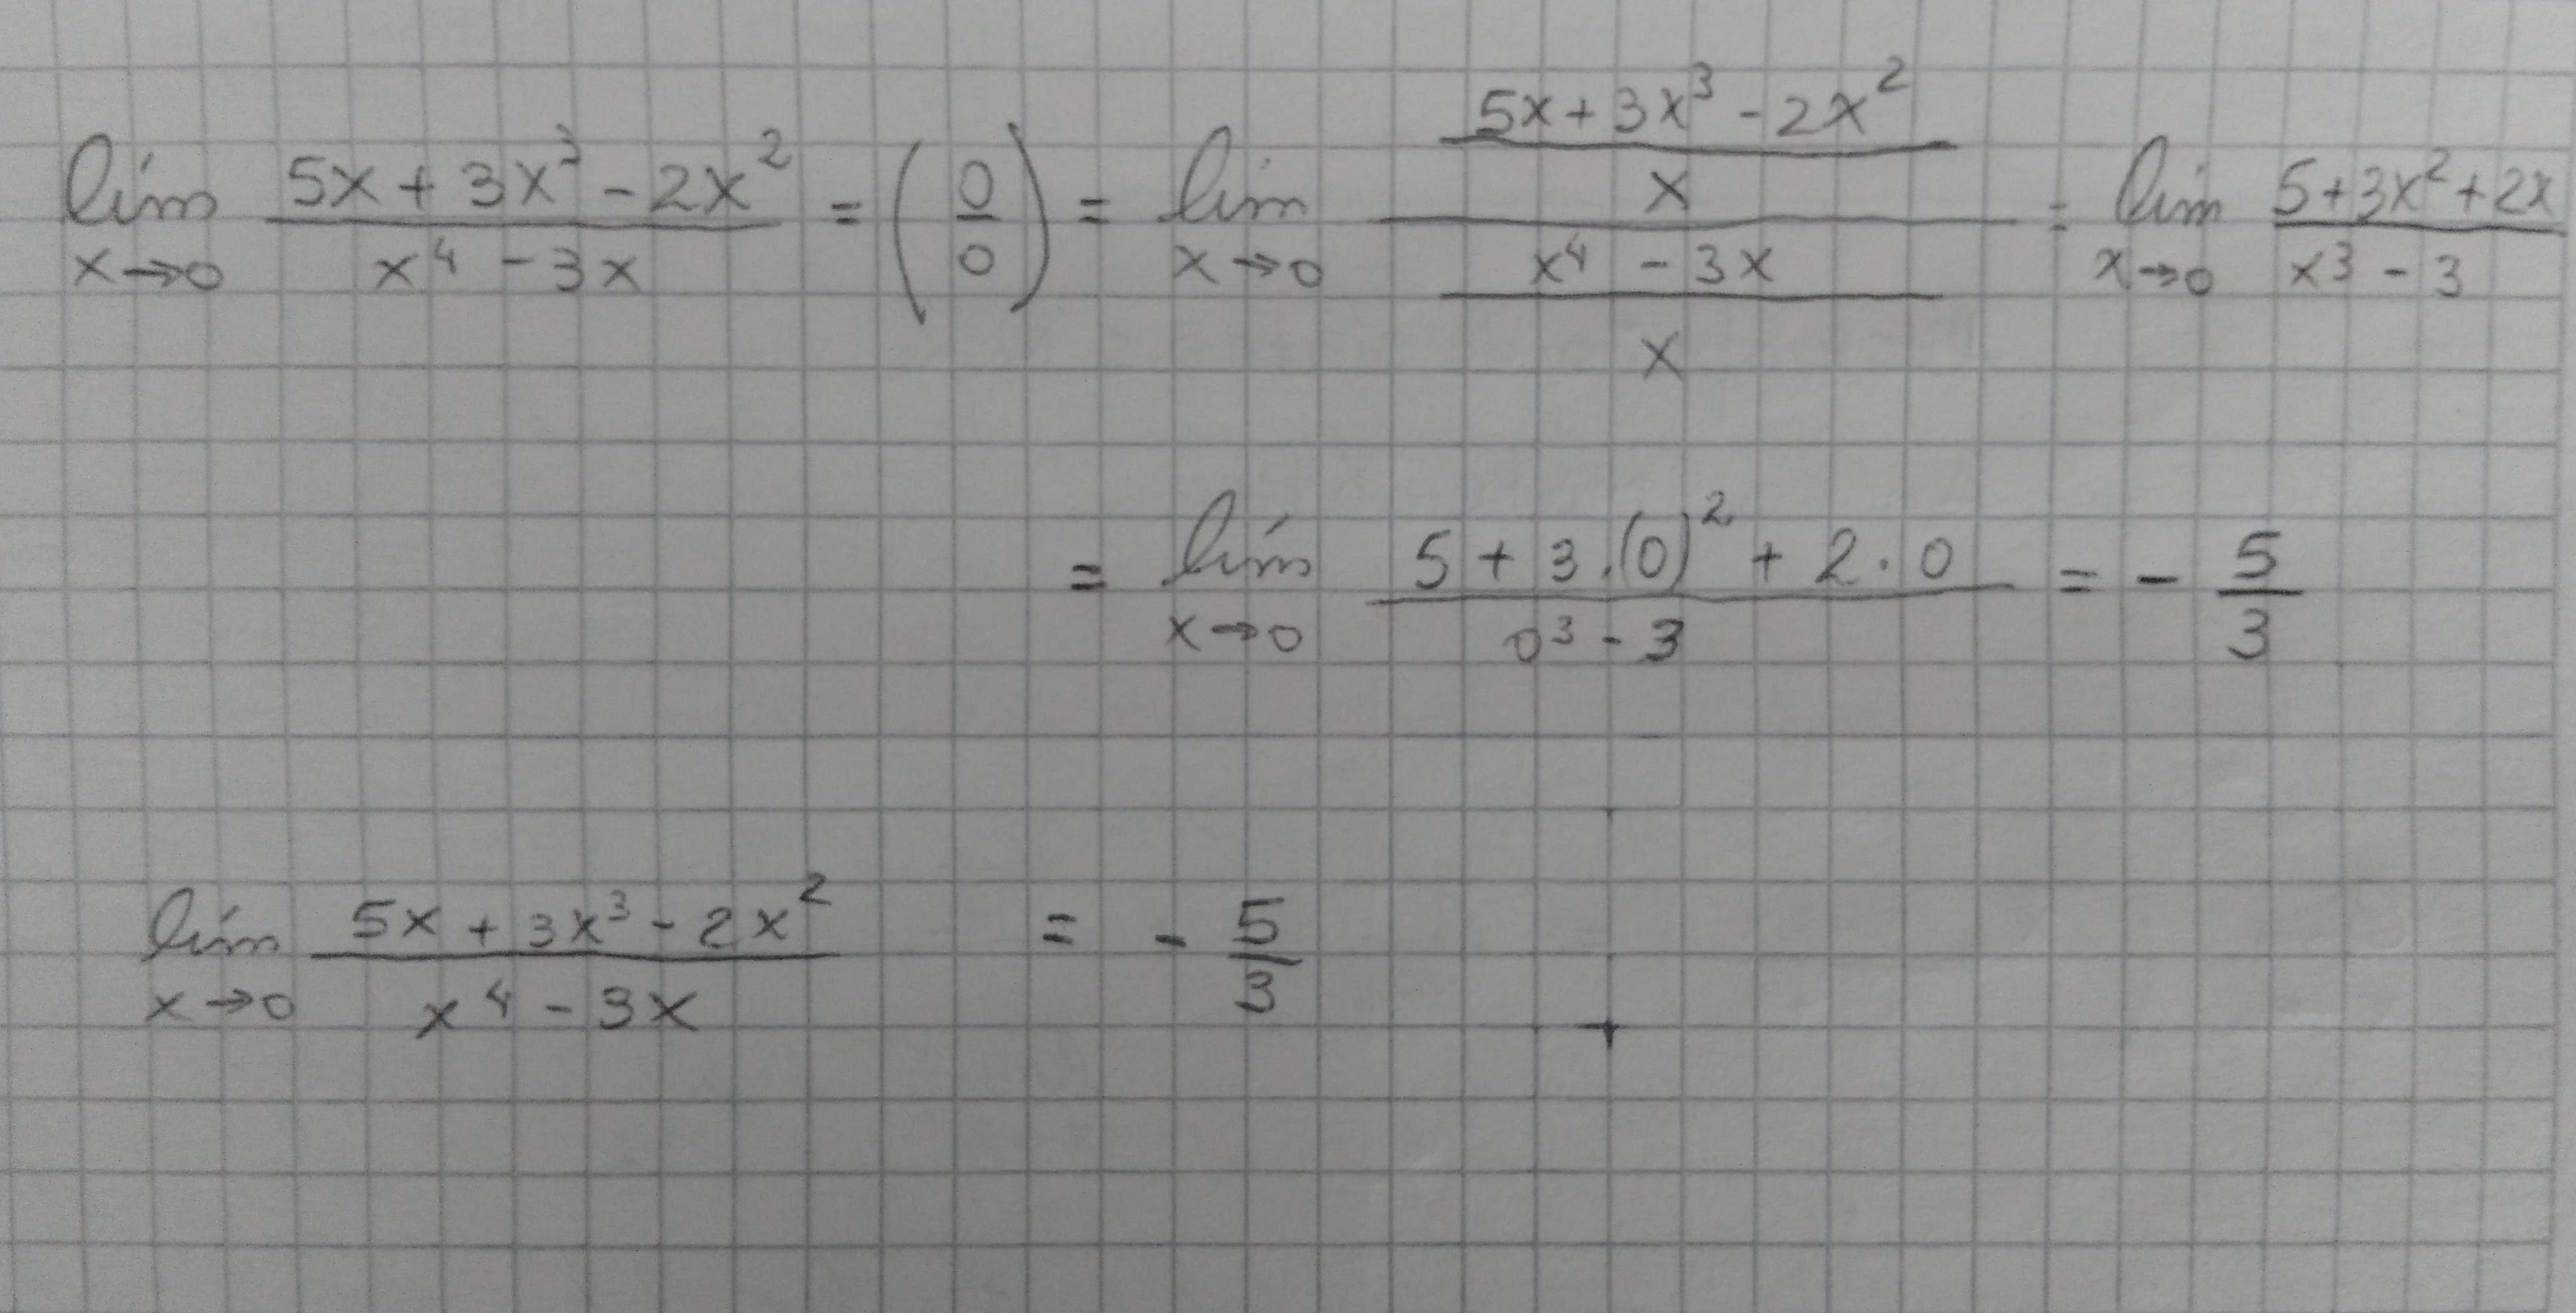 lím x→0 (5x + 3x³ - 2x²)/(x⁴ - 3x) = (0/0) = lím x→0 ((5x + 3x³ - 2x²)/x)/((x⁴ - 3x)/x) = lím x→0 (5 + 3x² + 2x)/(x³ - 3)
= lím x→0 (5 + 3.(0)² + 2 · 0)/(0³ - 3) = - 5/3
lím x→0 (5x + 3x³ - 2x²)/(x⁴ - 3x) = - 5/3